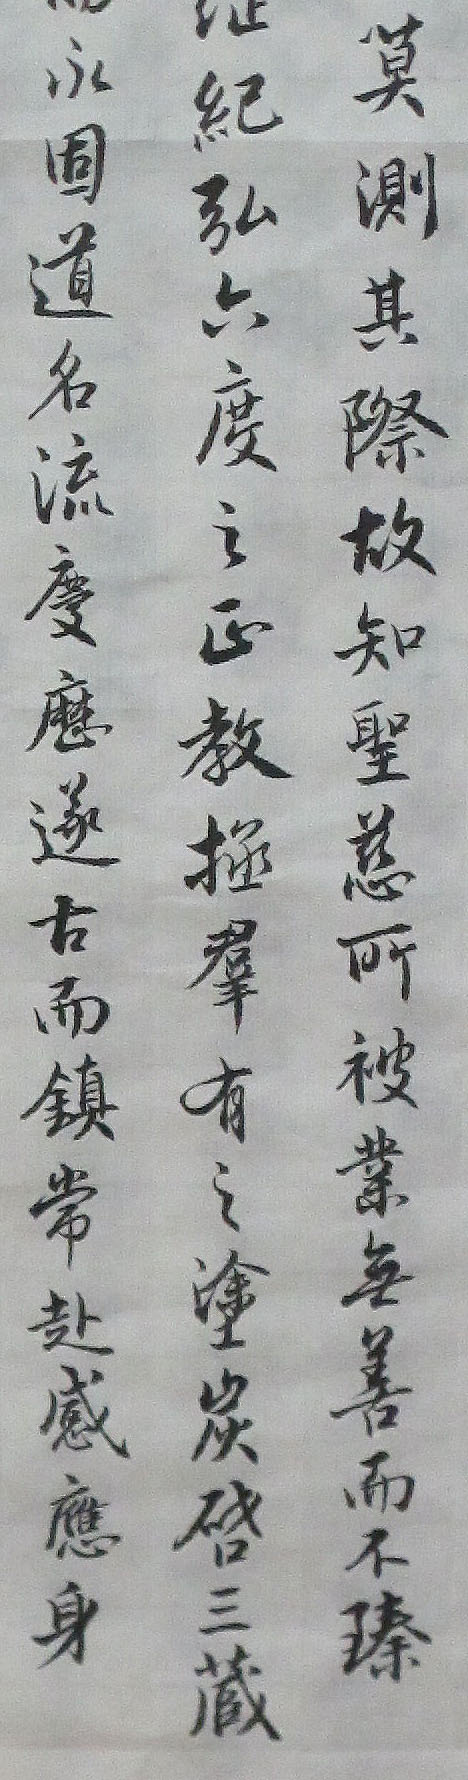 莫測其際故知聖慈所被業無善而不臻
紀弘六度之正教拯羣有之塗炭啓三藏
永固道名流慶歷遂古而鎮常赴感應身